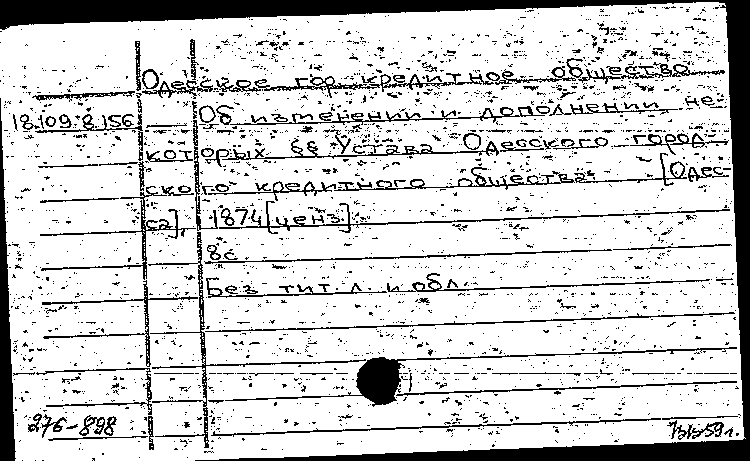 Одесское гор. кредитное общество
18.109.8.156
Об изменении и дополнении не-
которых §§ Устава Одесского город-
ского кредитного общества. [Одес-
са], 1874 [ценз].
8с.
Без тит. л. и обл.
276-898
59 г.